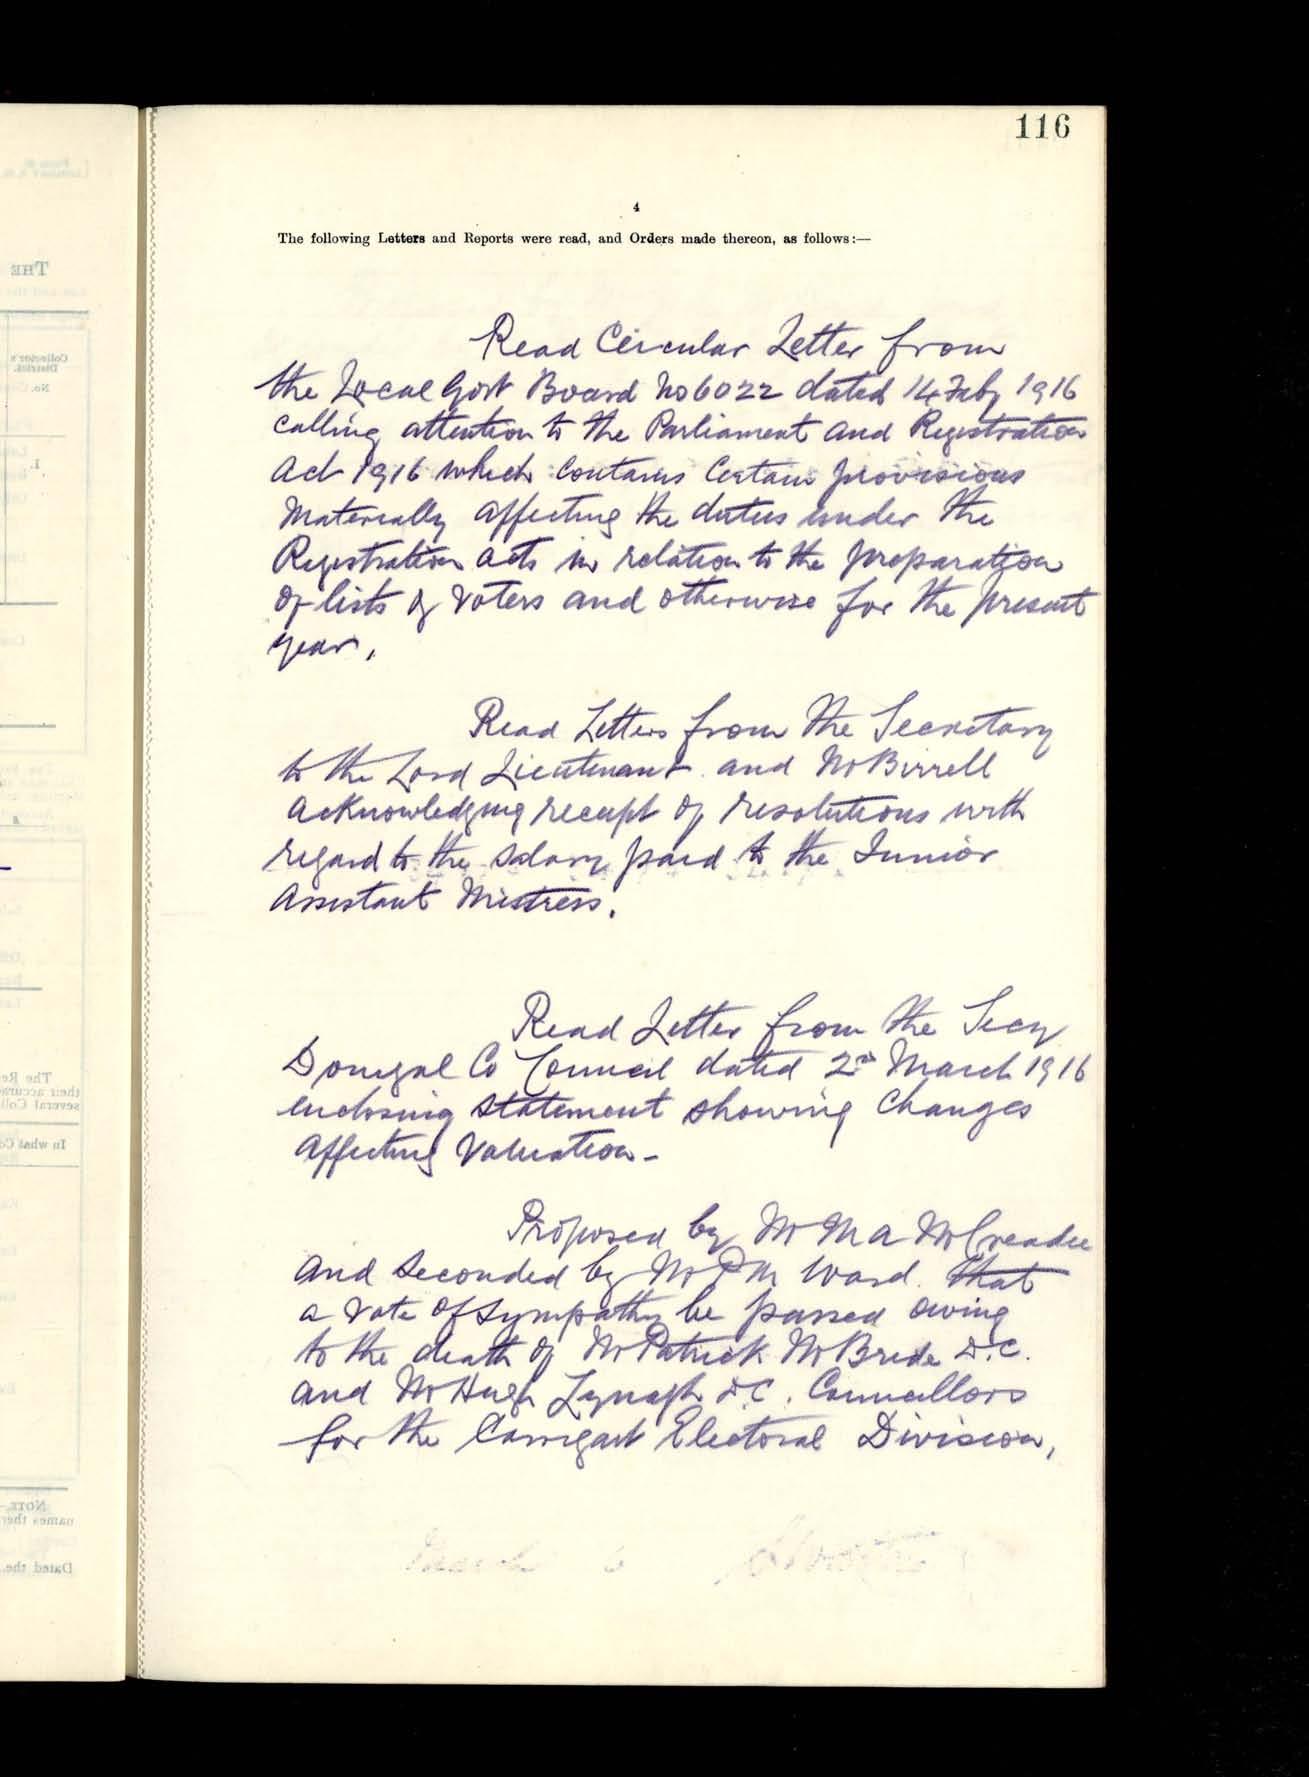 116
4
The following Letters and Reports were read, and Orders made thereon, as follows:—
Read Circular Letter from
the Local Govt Board No 6022 dated 14 Feby 1916
calling attention to the Parliament and Registration
Act 1916 which contains certain provisions
materially affecting the duties under the
Registration Acts in relation to the preparation
of lists of voters and otherwise for the present
year.
Read Letters from the Secretary
to the Lord Lieutenant and Mr Birrell
acknowledging receipt of resolutions with
regard to the salary paid to the Junior
Assistant Mistress.
Read Letter from the Secy
Donegal Co Council dated 2nd March 1916
enclosing statement showing changes
affecting Valuation -
Proposed by Mr M A McCreadie
and seconded by Mr P M Ward. That
a vote of sympathy be passed owing
to the death of Mr Patrick McBride D.C.
and Mr Hugh D.C. Councillors
for the Carrigart Electoral Division,
THE
Collector's
District.
No.
1.
The Re
their accura
several Coll
In what Co
NOTE.—
names ther
Dated the